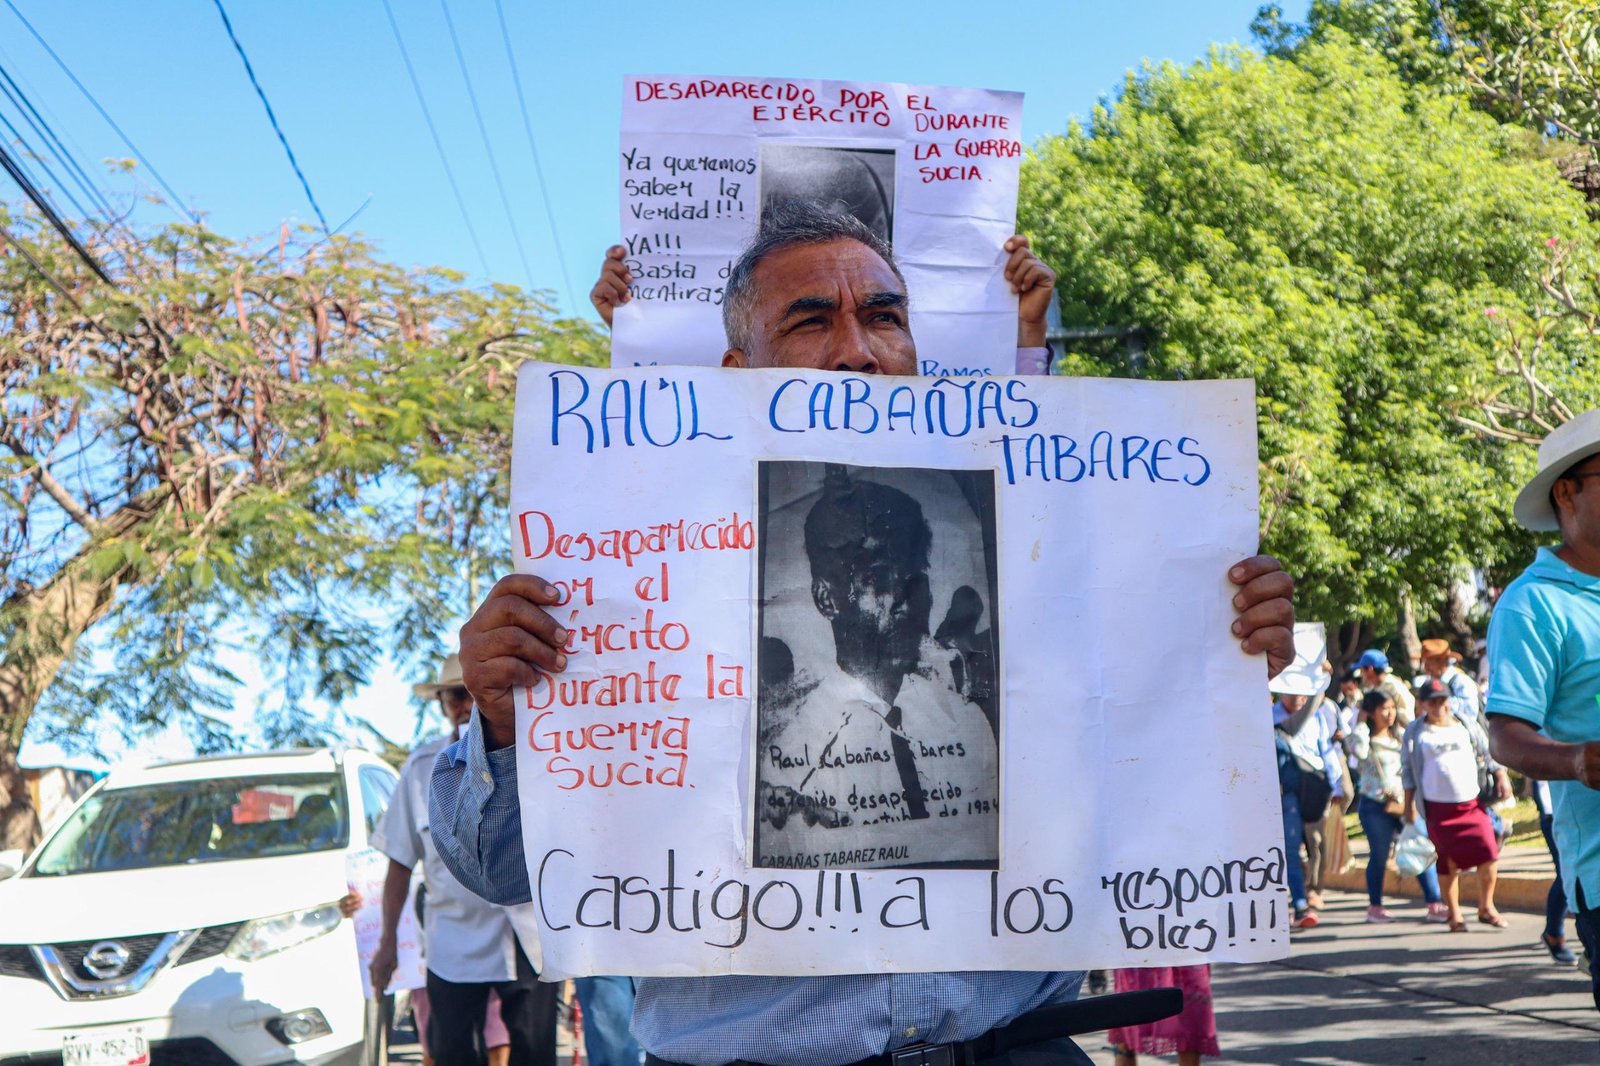 DESAPARECIDO POR EL
EJÉRCITO DURANTE
LA GUERRA
SUCIA.
Ya queremos
saber la
verdad!!!
YA!!!
Basta d
mentiras
RAMOS
RAÚL CABAÑAS
TABARES
Desaparecido
por el
ército
Durante la
Guerra
Sucia.
Raul Cabañas bares
detenido desaparecido
de octub de 1974
CABAÑAS TABAREZ RAUL
Castigo!!! a los responsa
bles!!!